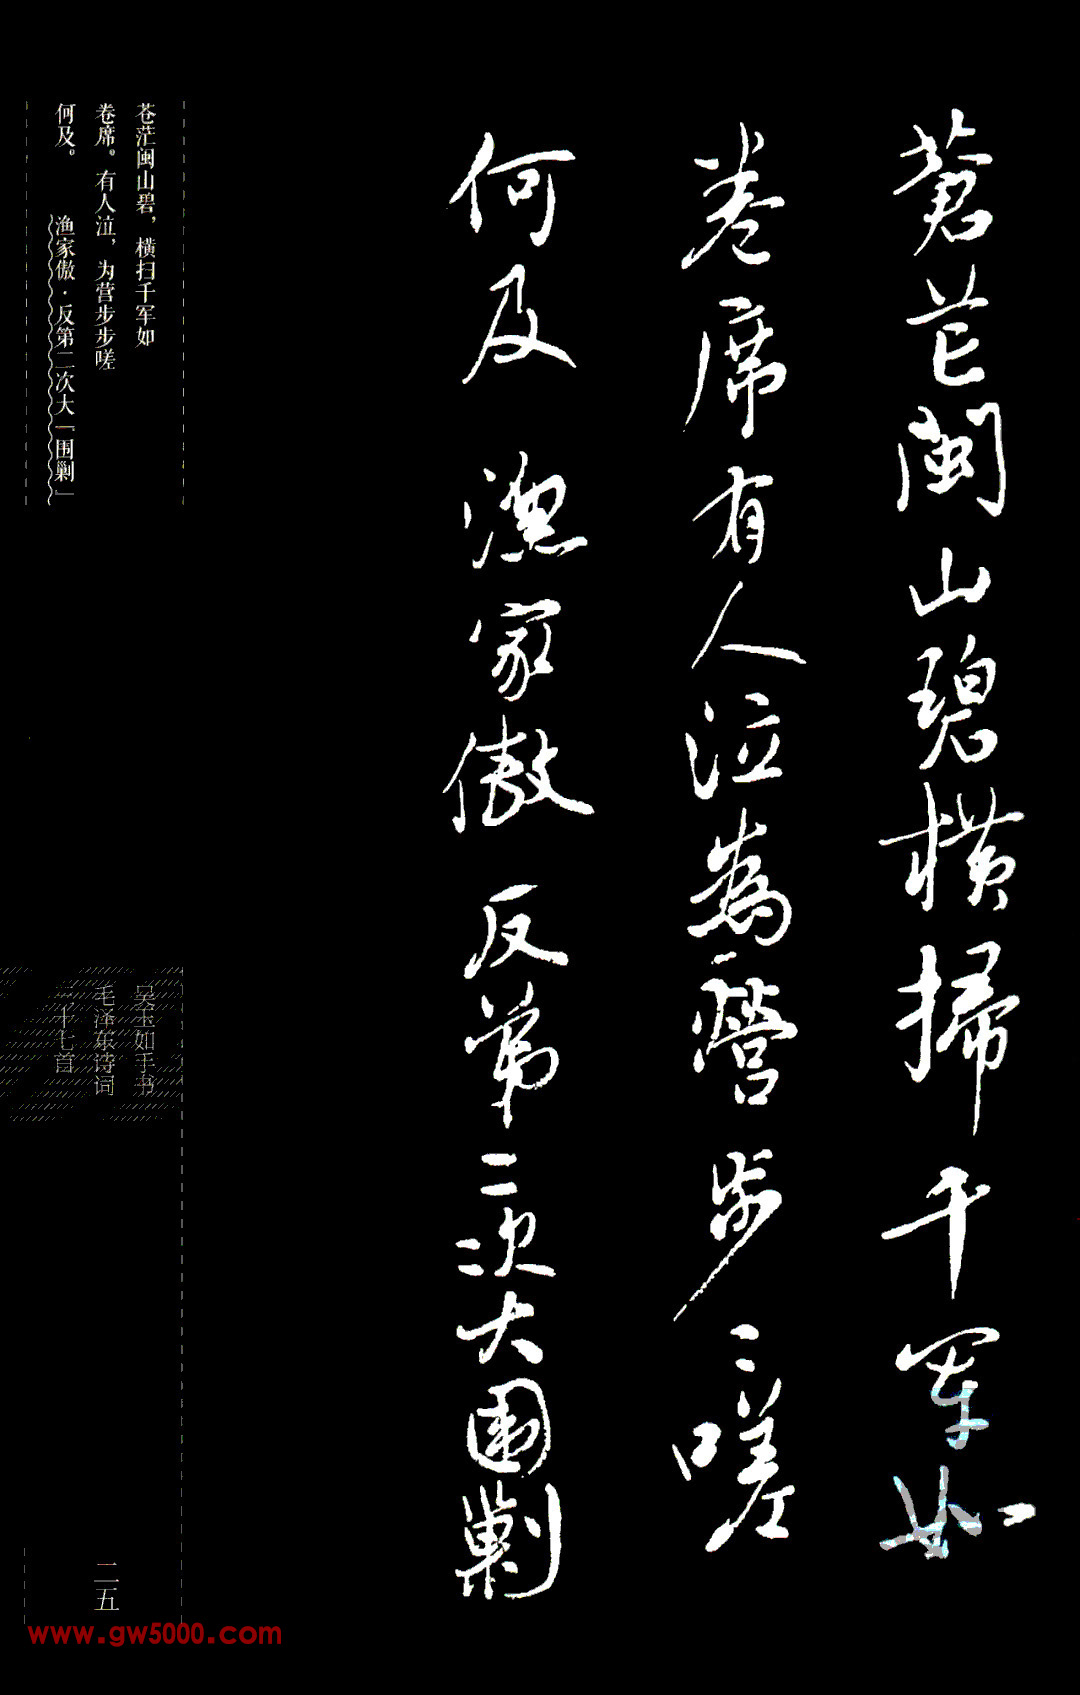 蒼茫閩山碧橫掃千軍如
卷席有人泣為營步〻嗟
何及 漁家傲 反第二次大圍剿
苍茫闽山碧，横扫千军如
卷席。有人泣，为营步步嗟
何及。 渔家傲·反第二次大「围剿」
吴玉如手书
毛泽东诗词
二十七首
二五
www.gw5000.com